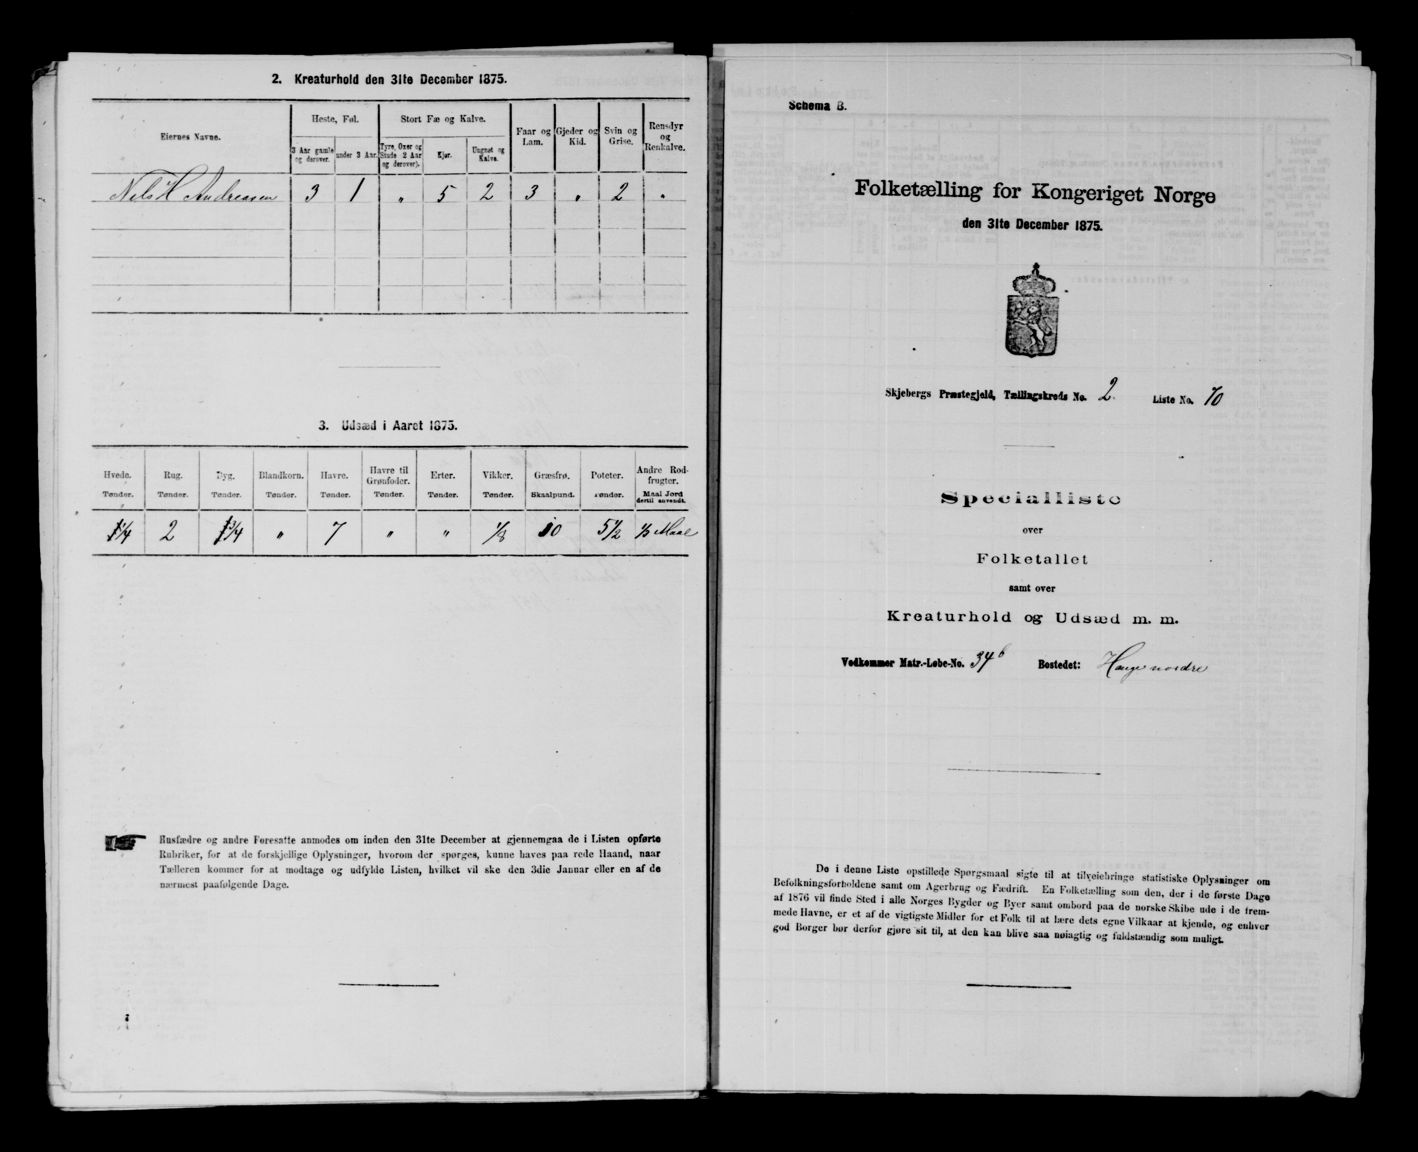 2. Kreaturhold den 31te December 1875.
Eiernes Navne.
Heste, Føl.
3 Aar gamle og derover.
under 3 Aar.
Stort Fæ og Kalve.
Tyre, Oxer og Stude 2 Aar og derover).
Kjør.
Ungnøt og Kalve.
Faar og Lam.
Gjeder og Kid.
Svin og Grise.
Rensdyr og Renkalve.
Nils H Andreasen 3 1 " 5 2 3 " 2 "
3. Udsæd i Aaret 1875.
Hvede. Rug. Byg. Blandkorn. Havre. Havre til Grønfoder. Erter. Vikker. Græsfrø. Poteter. Andre Rodfrugter.
Tønder. Tønder. Tønder. Tønder. Tønder. Tønder. Tønder. Tønder. Skaalpund. Tønder. Maal Jord dertil anvendt.
1/4 2 3/4 " 7 " " 1/8 10 5 1/2 1/3 Maal
Husfædre og andre Foresatte anmodes om inden den 31te December at gjennemgaa de i Listen opførte
Rubriker, for at de forskjellige Oplysninger, hvorom der spørges, kunne haves paa rede Haand, naar
Tælleren kommer for at modtage og udfylde Listen, hvilket vil ske den 3die Januar eller en af de
nærmest paafølgende Dage.
Schema B.
Folketælling for Kongeriget Norge
den 31te December 1875.
Skjebergs Præstegjeld, Tællingskreds No. 2. Liste No. 70
Specialliste
over
Folketallet
samt over
Kreaturhold og Udsæd m. m.
Vedkommer Matr.-Løbe-No. 34b Bostedet: Hauge nordre
De i denne Liste opstillede Spørgsmaal sigte til at tilveiebringe statistiske Oplysninger om
Befolkningsforholdene samt om Agerbrug og Fædrift. En Folketælling som den, der i de første Dage
af 1876 vil finde Sted i alle Norges Bygder og Byer samt ombord paa de norske Skibe ude i de frem-
mede Havne, er et af de vigtigste Midler for et Folk til at lære dets egne Vilkaar at kjende, og enhver
god Borger bør derfor gjøre sit til, at den kan blive saa nøiagtig og fuldstændig som muligt.